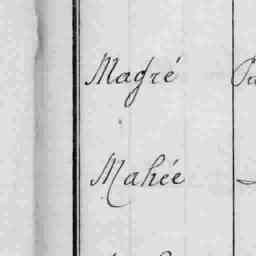 Magré
Mahée